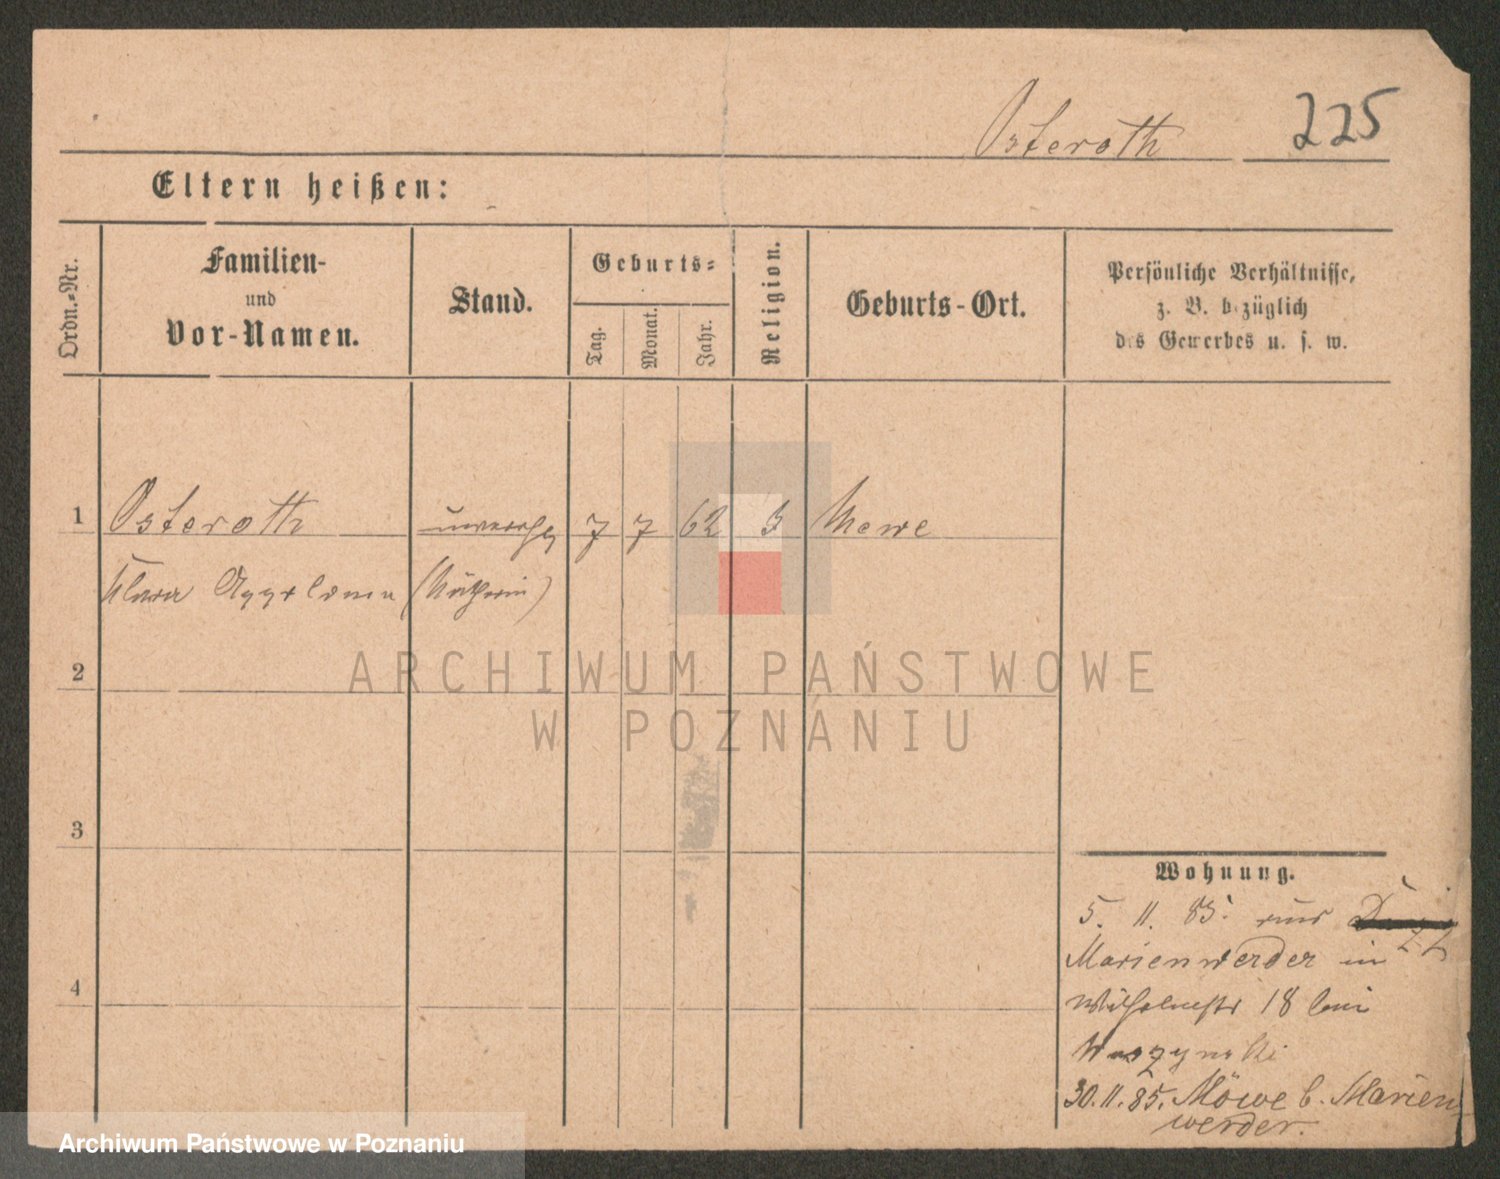 Osteroth 225
Eltern heißen:
Ordn.-Nr.
Familien-
und
Vor-Namen.
Stand.
Geburts-
Tag.
Monat.
Jahr.
Religion.
Geburts-Ort.
Persönliche Verhältnisse,
z. B. bezüglich
des Gewerbes u. s. w.
1 Osteroth 7 7 62 Mewe
Clara (Nätherin)
2
3
4
Wohnung.
5. 11. 85. aus
Marienwerder in
Wilhelmstr 18 bei
30.11.85. Möwe b. Marien-
werder.
ARCHIWUM PAŃSTWOWE
W POZNANIU
Archiwum Państwowe w Poznaniu